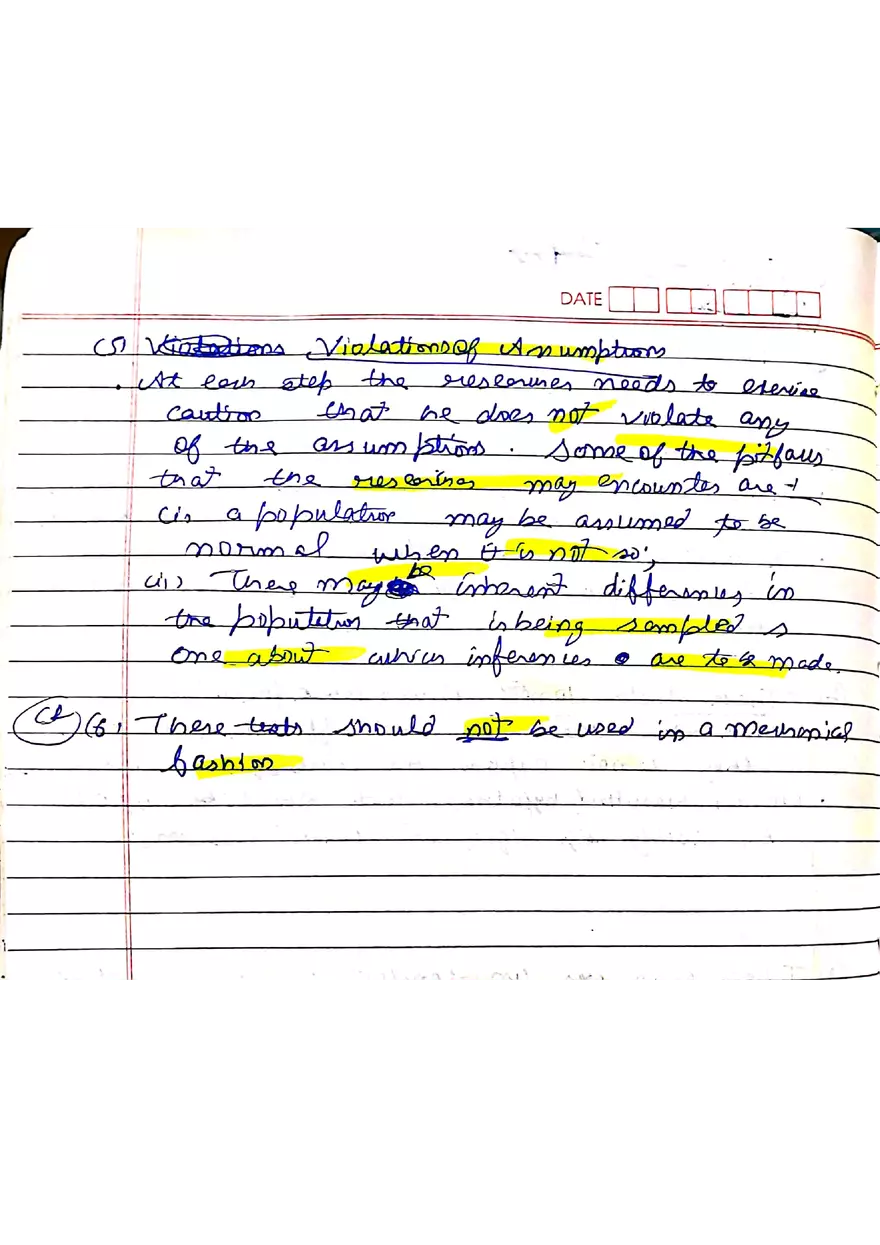 DATE
(5) Violations Violations Of Assumptions
. At each step the researcher needs to exercise
caution that he does not violate any
of the assumptions. Some of the pitfalls
that the researcher may encounter are -
(i) a population may be assumed to be
normal when it is not so;
(ii) There may be inherent differences in
the population that is being sampled &
one about which inferences are to be made.
(6) There tests should not be used in a mechanical
fashion